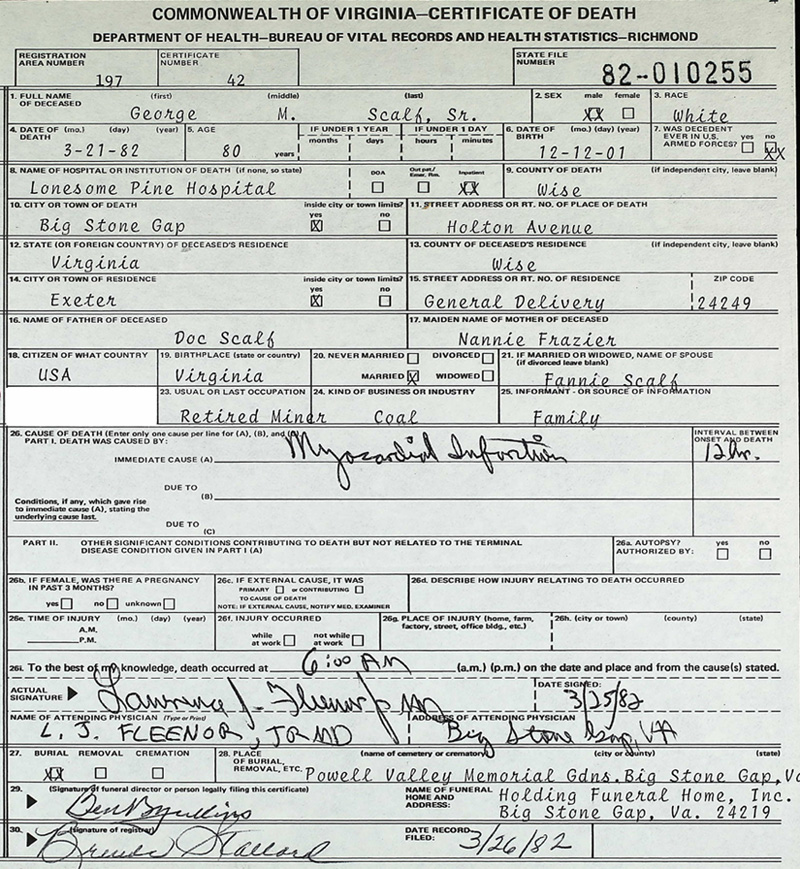 COMMONWEALTH OF VIRGINIA—CERTIFICATE OF DEATH
DEPARTMENT OF HEALTH—BUREAU OF VITAL RECORDS AND HEALTH STATISTICS—RICHMOND
REGISTRATION AREA NUMBER 197 CERTIFICATE NUMBER 42 STATE FILE NUMBER 82-010255
1. FULL NAME OF DECEASED (first) (middle) (last) 2. SEX male female 3. RACE
George M. Scalf, Sr. XX White
4. DATE OF DEATH (mo.) (day) (year) 5. AGE IF UNDER 1 YEAR IF UNDER 1 DAY 6. DATE OF BIRTH (mo.) (day) (year) 7. WAS DECEDENT EVER IN U.S. ARMED FORCES? yes no
3-21-82 80 years months days hours minutes 12-12-01 XX
8. NAME OF HOSPITAL OR INSTITUTION OF DEATH (if none, so state) DOA Out pat./ Emer. Rm. Inpatient 9. COUNTY OF DEATH (if independent city, leave blank)
Lonesome Pine Hospital XX Wise
10. CITY OR TOWN OF DEATH inside city or town limits? yes no 11. STREET ADDRESS OR RT. NO. OF PLACE OF DEATH
Big Stone Gap X Holton Avenue
12. STATE (OR FOREIGN COUNTRY) OF DECEASED'S RESIDENCE 13. COUNTY OF DECEASED'S RESIDENCE (if independent city, leave blank)
Virginia Wise
14. CITY OR TOWN OF RESIDENCE inside city or town limits? yes no 15. STREET ADDRESS OR RT. NO. OF RESIDENCE ZIP CODE
Exeter X General Delivery 24249
16. NAME OF FATHER OF DECEASED 17. MAIDEN NAME OF MOTHER OF DECEASED
Doc Scalf Nannie Frazier
18. CITIZEN OF WHAT COUNTRY 19. BIRTHPLACE (state or country) 20. NEVER MARRIED DIVORCED 21. IF MARRIED OR WIDOWED, NAME OF SPOUSE (if divorced leave blank)
USA Virginia MARRIED X WIDOWED Fannie Scalf
23. USUAL OR LAST OCCUPATION 24. KIND OF BUSINESS OR INDUSTRY 25. INFORMANT - OR SOURCE OF INFORMATION
Retired Miner Coal Family
26. CAUSE OF DEATH (Enter only one cause per line for (A), (B), and (C)) INTERVAL BETWEEN ONSET AND DEATH
PART I. DEATH WAS CAUSED BY:
IMMEDIATE CAUSE (A) Myocardial Infarction 12 hr.
DUE TO (B)
Conditions, if any, which gave rise to immediate cause (A), stating the underlying cause last.
DUE TO (C)
PART II. OTHER SIGNIFICANT CONDITIONS CONTRIBUTING TO DEATH BUT NOT RELATED TO THE TERMINAL DISEASE CONDITION GIVEN IN PART I (A) 26a. AUTOPSY? AUTHORIZED BY: yes no
26b. IF FEMALE, WAS THERE A PREGNANCY IN PAST 3 MONTHS? 26c. IF EXTERNAL CAUSE, IT WAS 26d. DESCRIBE HOW INJURY RELATING TO DEATH OCCURRED
yes no unknown PRIMARY or CONTRIBUTING TO CAUSE OF DEATH
NOTE: IF EXTERNAL CAUSE, NOTIFY MED. EXAMINER
26e. TIME OF INJURY (mo.) (day) (year) 26f. INJURY OCCURRED 26g. PLACE OF INJURY (home, farm, factory, street, office bldg., etc.) 26h. (city or town) (county) (state)
A.M. P.M. while at work not while at work
26i. To the best of my knowledge, death occurred at 6:00 AM (a.m.) (p.m.) on the date and place and from the cause(s) stated.
ACTUAL SIGNATURE Lawrence J. Fleenor Jr MD DATE SIGNED: 3/25/82
NAME OF ATTENDING PHYSICIAN (Type or Print) ADDRESS OF ATTENDING PHYSICIAN
L. J. FLEENOR, JR MD Big Stone Gap, VA
27. BURIAL REMOVAL CREMATION 28. PLACE OF BURIAL, REMOVAL, ETC. (name of cemetery or crematory) (city or county) (state)
XX Powell Valley Memorial Gdns. Big Stone Gap, Va
29. (Signature of funeral director or person legally filing this certificate) NAME OF FUNERAL HOME AND ADDRESS: Holding Funeral Home, Inc.
Big Stone Gap, Va. 24219
30. (signature of registrar) DATE RECORD FILED: 3/26/82
Brenda Stallard